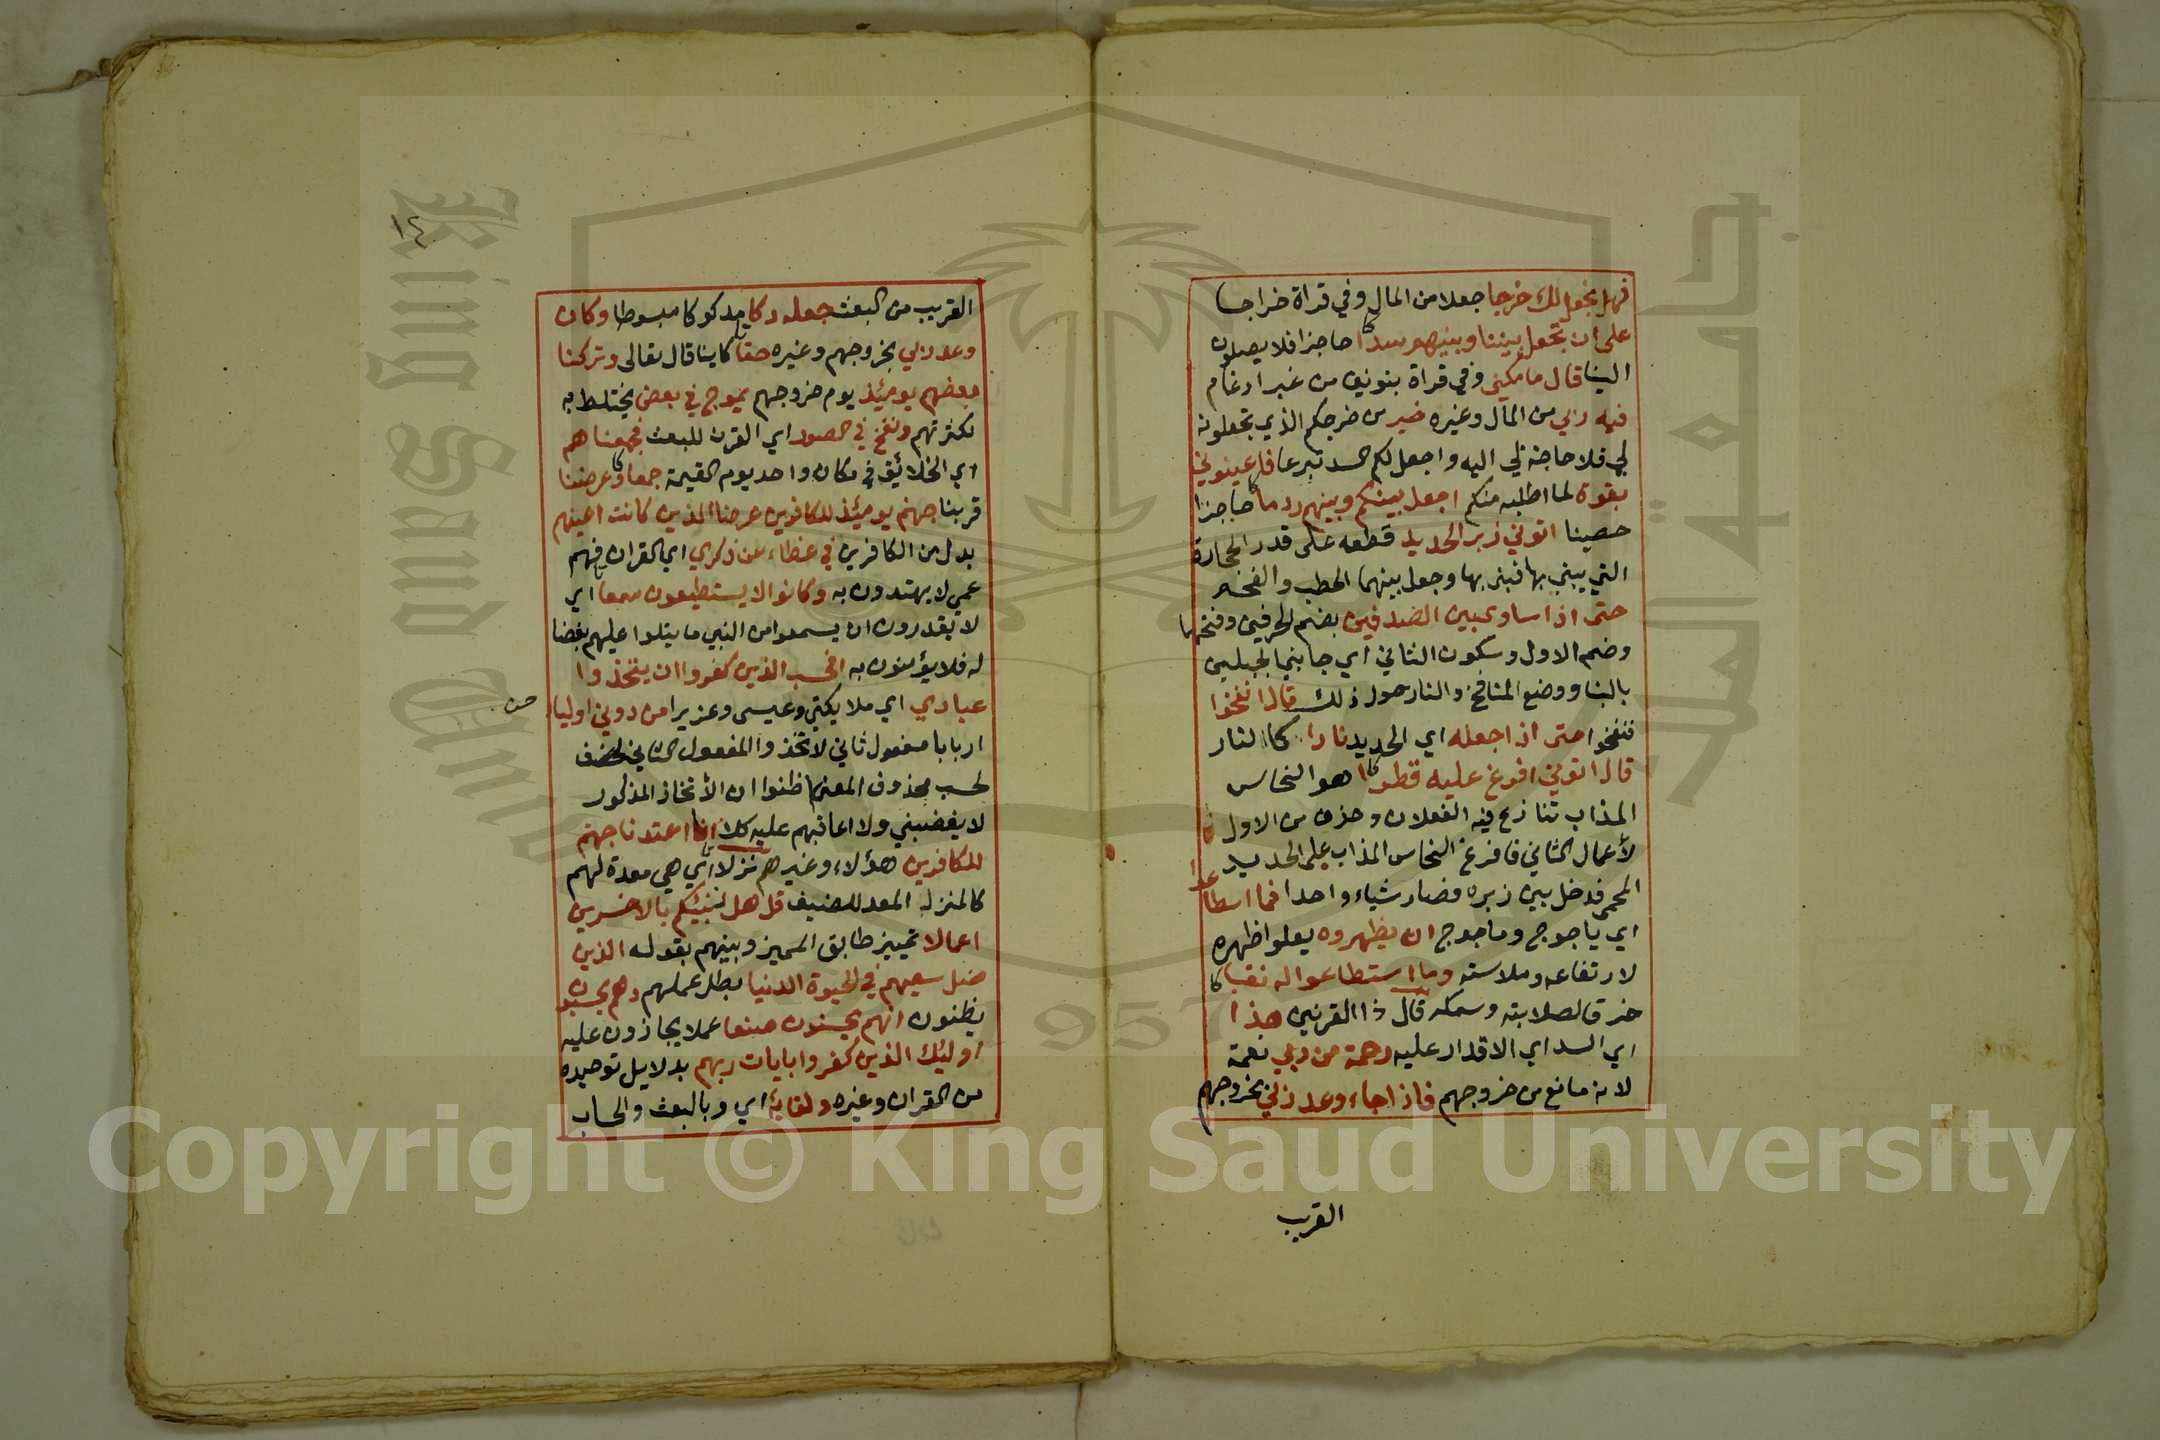 فهل نجعل لك خرجا جعلا من المال وفي قراة خراجا
على ان تجعل بيننا وبينهم سدا حاجزا فلا يصلون
الينا قال ما مكني وفي قراة بنونين من غير ادغام
فيه ربي من المال وغيره خير من خرجكم الذي تجعلونه
لي فلا حاجة لي اليه واجعل لكم السد تبرعا فاعينوني
بقوة لما اطلبه منكم اجعل بينكم وبينهم ردما حاجزا
حصينا اتوني زبر الحديد قطعه على قدر الحجارة
التي يبني بها فبنى بها وجعل بينهما الحطب والفحم
حتى اذا ساوى بين الصدفين بضم الحرفين وفتحهما
وضم الاول وسكون الثاني اي جانبي الجبلين
بالبنا ووضع المنافخ والنار حول ذلك قال انفخوا
فنفخوا حتى اذا جعله اي الحديد نارا كالنار
قال اتوني افرغ عليه قطرا هو النحاس
المذاب تنازع فيه الفعلان وحذف من الاول
لأعمال الثاني فافرغ النحاس المذاب على الحديد
المحمى فدخل بين زبره فصار شياء واحدا فما اسطاعوا
اي ياجوج وماجوج ان يظهروه يعلوا ظهره
لارتفاعه وملاسته وما استطاعوا له نقبا
خرقا لصلابته وسمكه قال ذا القرنين هذا
اي السد اي الاقدار عليه رحمة من ربي نعمة
لانه مانع من خروجهم فاذا جاء وعد ربي بخروجهم
القريب
١٤
القريب من البعث جعله دكا مدكوكا مبسوطا وكان
وعد ربي بخروجهم وغيره حقا كاينا قال تعالى وتركنا
بعضهم يومئذ يوم خروجهم يموج في بعض يختلط به
لكثرتهم ونفخ في الصور اي القرن للبعث فجمعناهم
اي الخلائق في مكان واحد يوم القيمة جمعا وعرضنا
قربنا جهنم يومئذ للكافرين عرضا الذين كانت اعينهم
بدل من الكافرين في غطاء عن ذكري اي القران فهم
عمي لا يهتدون به وكانوا لا يستطيعون سمعا اي
لا يقدرون ان يسمعوا من النبي ما يتلوا عليهم بغضا
له فلا يؤمنون به افحسب الذين كفروا ان يتخذوا
عبادي اي ملايكتي وعيسى وعزيرا من دوني اوليا
اربابا مفعول ثاني لا تتخذوا المفعول الثاني
لحسب محذوف المعنى اظنوا ان الأتخاذ المذكور
لا يغضبني ولا اعاقبهم عليه كلا انا اعتدنا جهنم
للكافرين هؤلاء وغيرهم نزلا اي هي معدة لهم
كالمنزل المعد للضيف قل هل ننبئكم بالاخسرين
اعمالا تمييز طابق المميز وبينهم بقوله الذين
ضل سعيهم في الحيوة الدنيا بطل عملهم وهم يحسبون
يظنون انهم يحسنون صنعا عملا يجازون عليه
اوليك الذين كفروا بايات ربهم بدلايل توحيده
من القران وغيره ولقايه اي وبالبعث والحساب
جامعة الملك سعود
King Saud University
1957
Copyright © King Saud University